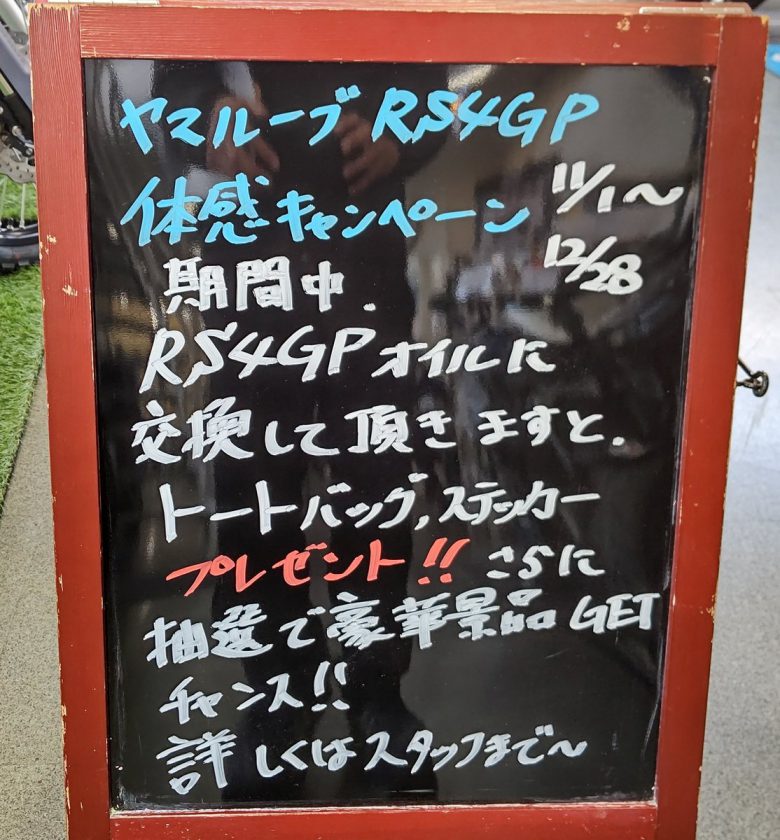 ヤマルーブ RS4GP
体感キャンペーン 11/1〜
12/28
期間中.
RS4GPオイルに
交換して頂きますと.
トートバッグ,ステッカー
プレゼント!! さらに
抽選で豪華景品GET
チャンス!!
詳しくはスタッフまで〜